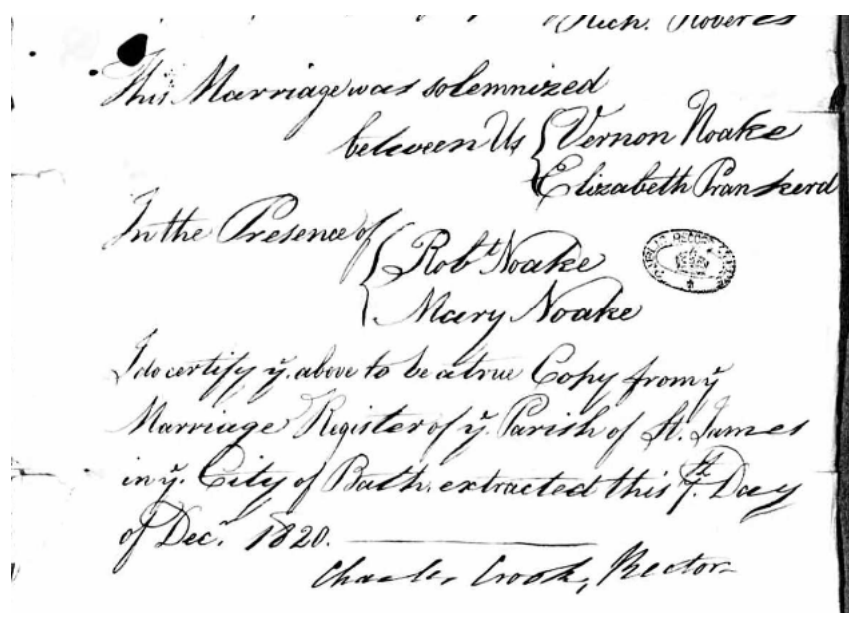 Rich. Roberts
This Marriage was solemnized
between Us { Vernon Noake
Elizabeth Prankerd
In the Presence of
{ Robt. Noake
Mary Noake
PUBLIC RECORD OFFICE
I do certify ye. above to be a true Copy from ye
Marriage Register of ye. Parish of St. James
in ye. City of Bath. extracted this 7th. Day
of Decr. 1820.
Charles Crook, Rector